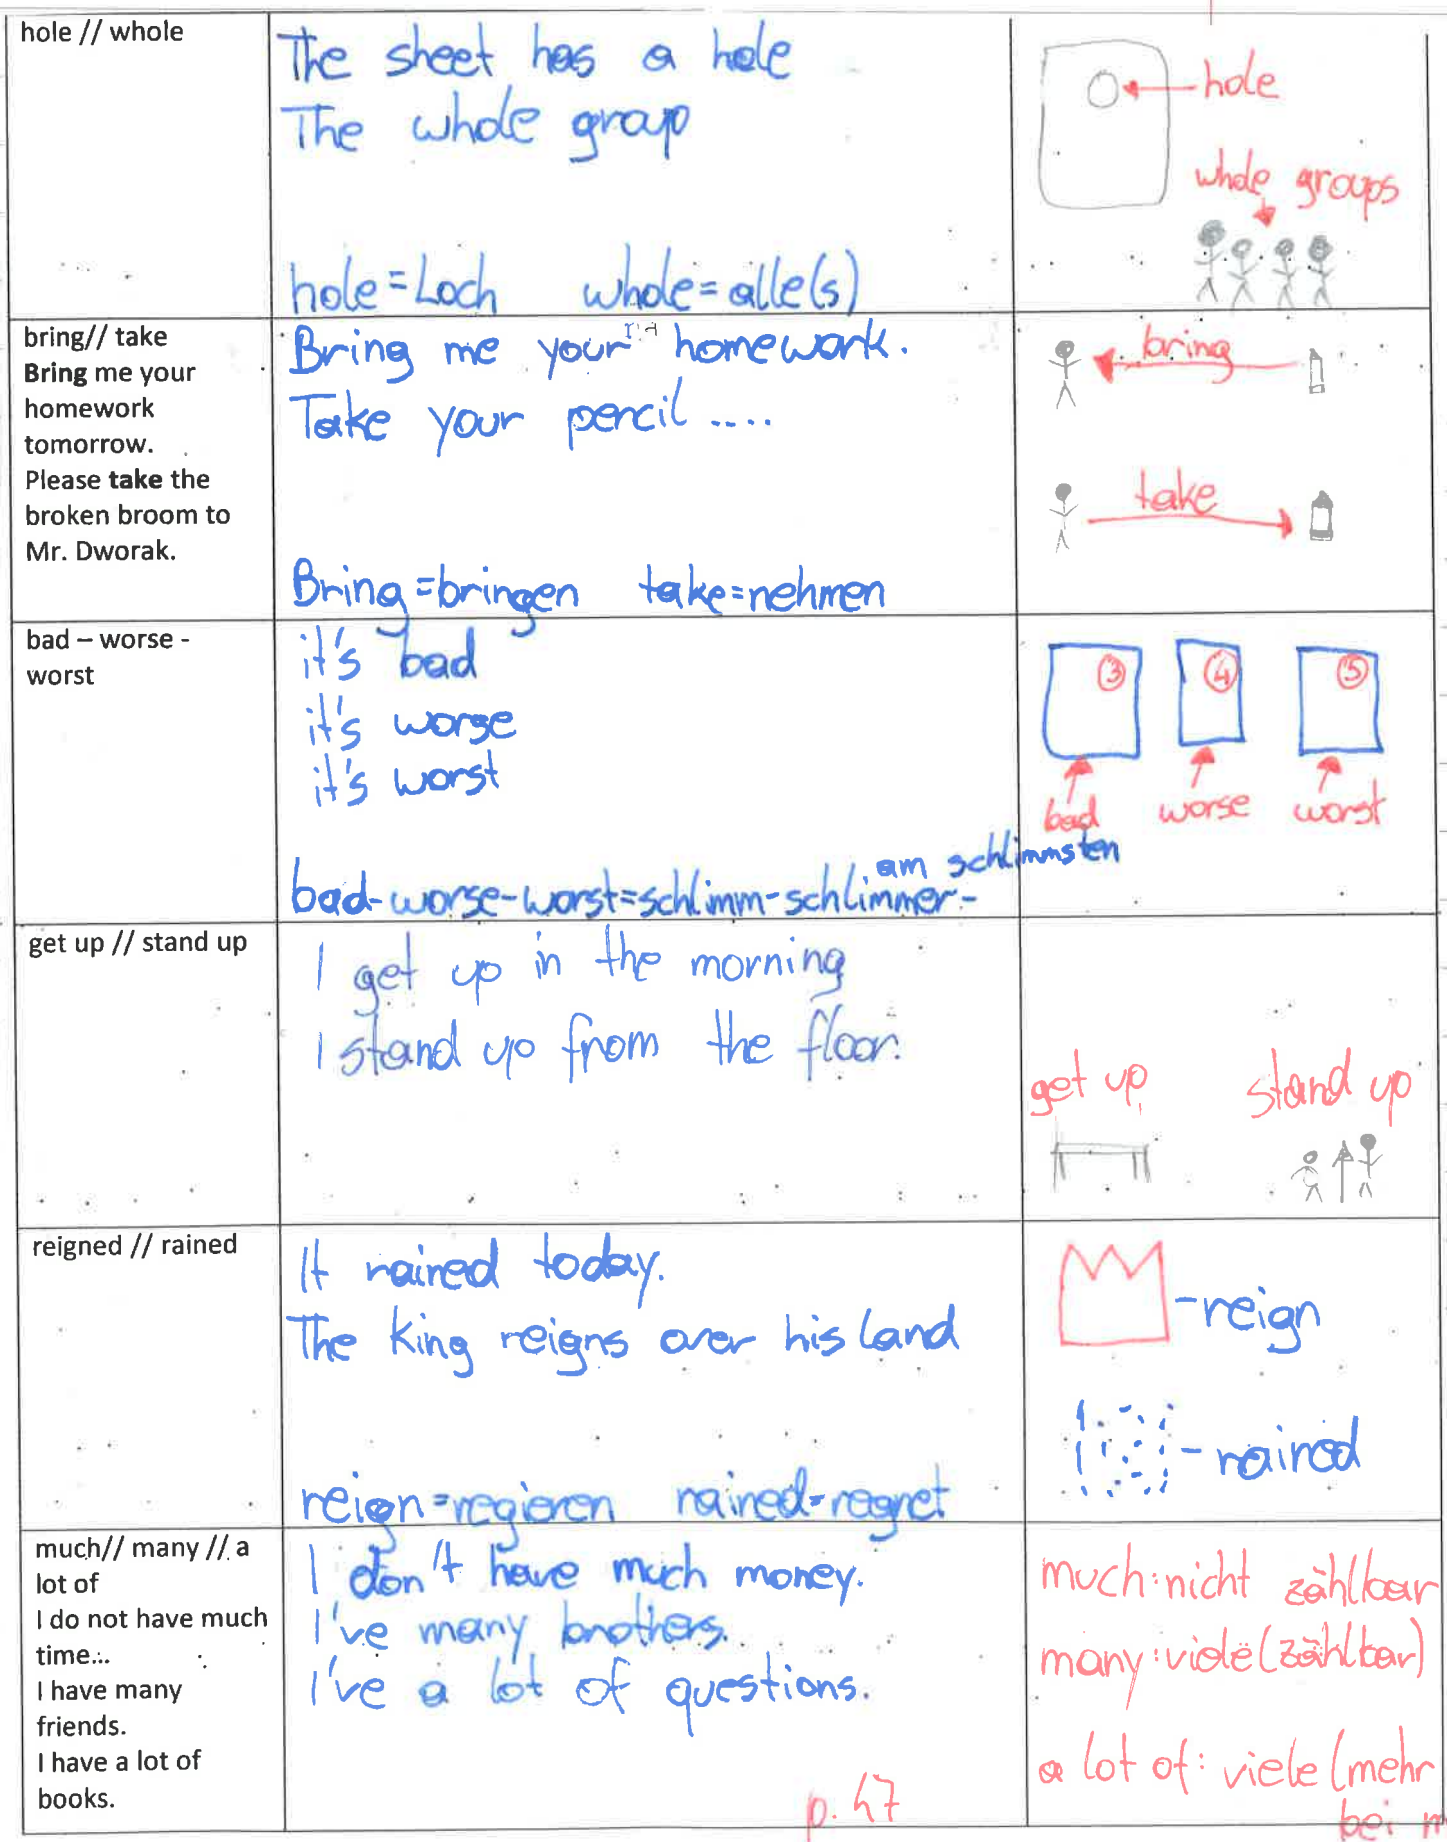 hole // whole
The sheet has a hole
The whole group
hole=Loch whole=alle(s)
hole
whole groups
bring// take
Bring me your
homework
tomorrow.
Please take the
broken broom to
Mr. Dworak.
Bring me your homework.
Take your pencil ....
Bring=bringen take=nehmen
bring
take
bad – worse -
worst
it's bad
it's worse
it's worst
bad-worse-worst=schlimm-schlimmer-
am schlimmsten
3 4 5
bad worse worst
get up // stand up
I get up in the morning
I stand up from the floor.
get up stand up
reigned // rained
It rained today.
The king reigns over his land
reign=regieren rained=regnet
-reign
-rained
much// many // a
lot of
I do not have much
time...
I have many
friends.
I have a lot of
books.
I don't have much money.
I've many brothers.
I've a lot of questions.
p. 47
much:nicht zählbar
many:viele(zählbar)
a lot of: viele (mehr
bei